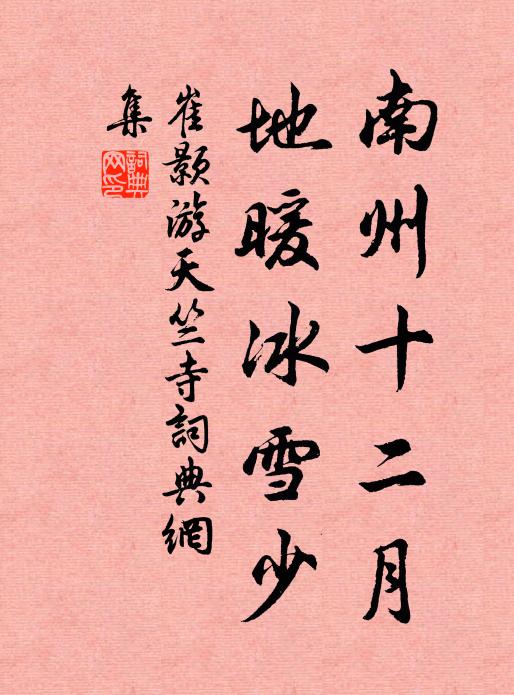 南州十二月
地暖冰雪少
崔颢游天竺寺詞典網
集
詞典网印